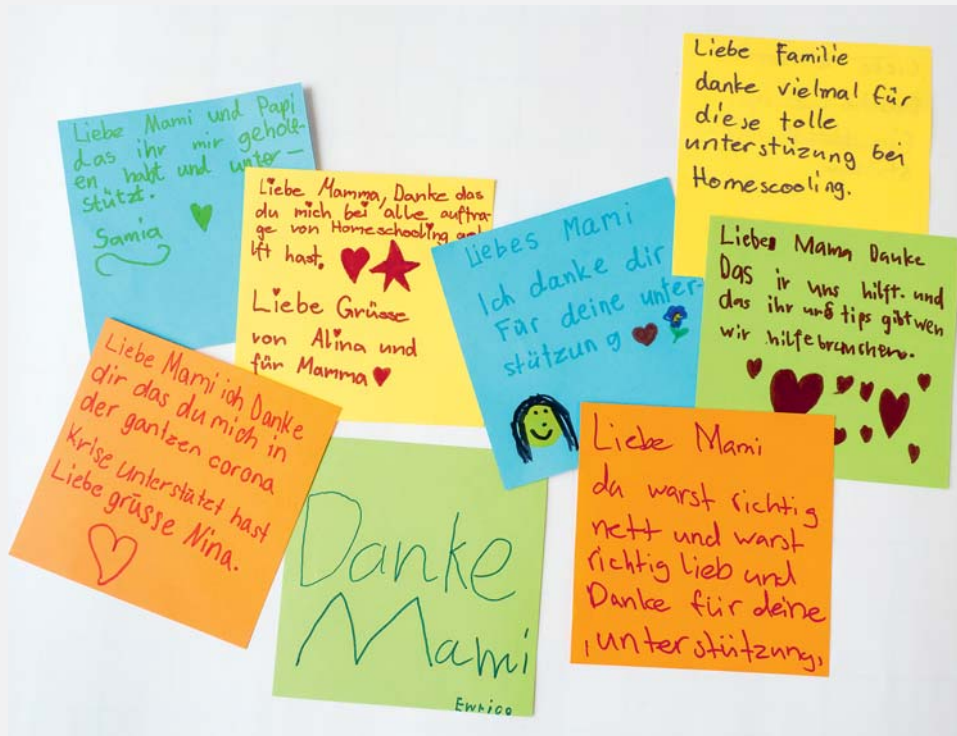 Liebe Mami und Papi
das ihr mir geholf-
en habt und unter-
stützt.
Samia
Liebe Mamma, Danke das
du mich bei alle auftra-
ge von Homeschooling geh-
lft hast.
Liebe Grüsse
von Alina und
für Mamma
Liebes Mami
Ich danke dir
Für deine unter-
stützung
Liebe Familie
danke vielmal für
diese tolle
unterstüzung bei
Homescooling.
Liebes Mama Danke
Das ir uns hilft. und
das ihr uns tips gibt wen
wir hilfe brauchen.
Liebe Mami ich Danke
dir das du mich in
der gantzen corona
Krise unterstützt hast
Liebe grüsse Nina.
Danke
Mami
Enrico
Liebe Mami
du warst richtig
nett und warst
richtig lieb und
Danke für deine
unterstützung,